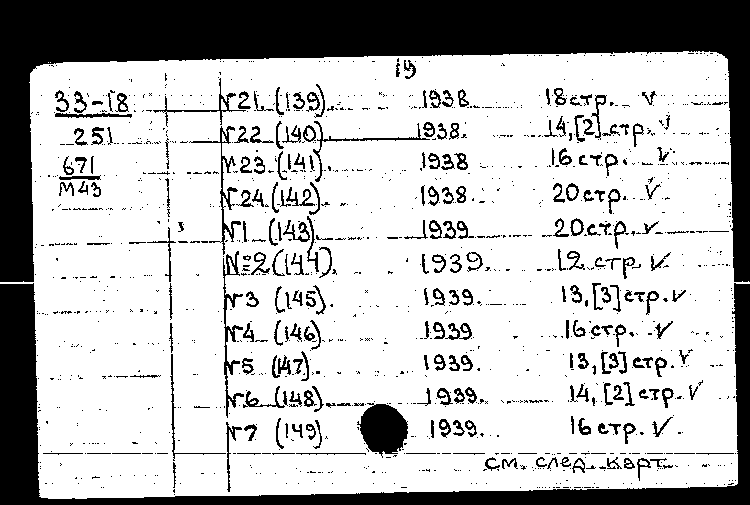 19
33-18 №21. (139). 1938 18 стр. V
251 №22 (140). 1938. 14,[2] стр. V
671 №23 (141). 1938 16 стр. V
М43 №24 (142). 1938. 20 стр. V
№1 (143). 1939 20 стр. V
№2 (144). 1939. 12 стр V
№3 (145). 1939. 13,[3] стр. V
№4 (146) 1939 16 стр. V
№5 (147). 1939. 13,[3] стр. V
№6 (148). 1939. 14,[2] стр. V
№7 (149). 1939. 16 стр. V.
см. след. карт.